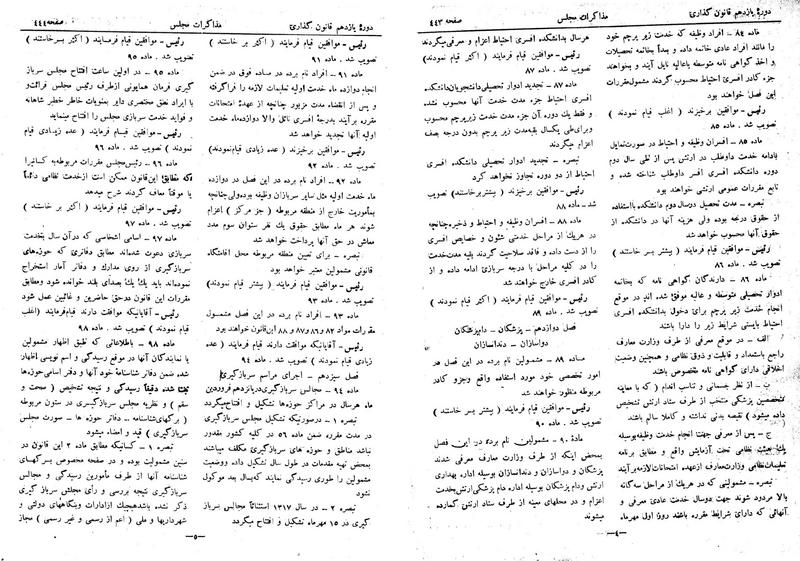 دورهٔ یازدهم قانون گذاری
مذاکرات مجلس
صفحه ۴۴۳
ماده ۸۴ - افراد وظیفه که خدمت زیر پرچم خود
را فاقد افراد عادی خاتمه داده و بعداً بخاتمه تحصیلات
و اخذ گواهی نامه متوسطه یا عالیه نایل آیند و بخواهند
جزء کادر افسری احتیاط محسوب گردند مشمول مقررات
فوق خواهند بود
رئیس - موافقین برخیزند ( اغلب قیام نمودند )
تصویب شد . ماده ۸۵
ماده ۸۵ - افسران وظیفه و احتیاط در صورت تمایل
بادامه خدمت داوطلب در ارتش پس از طی سال دوم
دوره دانشکده افسری افسر داوطلب شناخته شده و
تابع مقررات عمومی ارتش خواهند بود
تبصره - مدت تحصیل در سال دوم دانشکده با استفاده
از حقوق درجه بوده ولی هزینه آنها در دانشکده از
حقوق آنها محسوب خواهد شد
رئیس - موافقین قیام فرمایند ( بیشتر بر خاستند )
تصویب شد . ماده ۸۶
ماده ۸۶ - دارندگان گواهی نامه که بخاتمه
ادوار تحصیلی متوسطه و عالیه موفق شده اند در موقع
انجام خدمت زیر پرچم برای دخول بدانشکده افسری
احتیاط بایستی شرایط زیر را دارا باشند
الف - در موقع معرفی از طرف وزارت معارف
راجع باستعداد و قابلیت و ذوق نظامی و همچنین وضعیت
اخلاقی دارای گواهی نامه مخصوص باشند
ب - از نظر جسمانی و تناسب اندام ( که با معاینه
متخصصین پزشکی منتخب از طرف ستاد ارتش تشخیص
داده میشود ) نقیصه بدنی نداشته و کاملا سالم باشند
ج - پس از معرفی جهت انجام خدمت وظیفه بوسیله
یک هیئت نظامی تحت آزمایش واقع و مطابق برنامه
تعلیمات نظامی وزارت معارف از عهده امتحانات لازمه بر آیند
تبصره - مشمولینی که در هر یک از مراحل سه گانه
بالا مردود شوند جهت دوسال خدمت عادی معرفی و
آنهائی که دارای شرایط مقرره باشند روز اول مهرماه
هر سال بدانشکده افسری احتیاط اعزام و معرفی میگردند
رئیس - موافقین قیام فرمایند ( اکثر قیام نمودند )
تصویب شد . ماده ۸۷
ماده ۸۷ - تجدید ادوار تحصیلی دانشجویان دانشکده
افسری احتیاط جزء مدت خدمت آنها محسوب نشده
و فقط یک دوره آن جزء مدت خدمت زیر پرچم محسوب
و برای طی یکسال بقیه مدت زیر پرچم بدون درجه بصف
اعزام خواهند شد
تبصره - تجدید ادوار تحصیلی دانشکده افسری
احتیاط از دو دوره تجاوز نخواهد کرد
رئیس - موافقین برخیزند ( بیشتر بر خاستند ) تصویب
شد - ماده ۸۸
ماده ۸۸ - افسران وظیفه و احتیاط و ذخیره چنانچه
در هر یک از مراحل خدمتی شئون و خصایص افسری
را از دست داده و فاقد صلاحیت گردند بقیه مدت خدمت
را در کلیه مراحل با درجه سربازی ادامه داده و از
کادر افسری خارج خواهند شد
رئیس - موافقین قیام فرمایند ( اکثر قیام نمودند )
تصویب شد . ماده ۸۹
فصل دوازدهم - پزشکان - دامپزشکان
دواسازان - دندانسازان
ماده ۸۹ - مشمولین نام برده در این فصل در
امور تخصصی خود مورد استفاده واقع و جزو کادر
مربوطه منظور خواهند شد
رئیس - موافقین قیام فرمایند ( بیشتر بر خاستند )
تصویب شد . ماده ۹۰
ماده ۹۰ - مشمولین نام برده در این فصل
بمحض اینکه از طرف وزارت معارف معرفی شدند
پزشکان و دواسازان و دندانسازان بوسیله اداره بهداری
ارتش و دام پزشکان بوسیله اداره دام پزشکی ارتش بخدمت
اعزام و در محلهای معینه از طرف ستاد ارتش گمارده
میشوند
-٤-
دورهٔ یازدهم قانون گذاری
مذاکرات مجلس
صفحه ۴۴۴
رئیس - موافقین قیام فرمایند ( اکثر بر خاستند )
تصویب شد . ماده ۹۱
ماده ۹۱ - افراد نام برده در ماده فوق در ضمن
انجام دوازده ماه خدمت اولیه تعلیمات لازمه را فرا گرفته
و پس از انقضاء مدت مزبور چنانچه از عهدهٔ امتحانات
مقرره برآیند بدرجهٔ افسری نائل والا دوازده ماه خدمت
اولیه آنها تجدید خواهد شد
رئیس - موافقین برخیزند ( عده زیادی قیام نمودند )
تصویب شد . ماده ۹۲
ماده ۹۲ - افراد نام برده در این فصل در دوازده
ماه خدمت اولیه مثل سایر سربازان وظیفه بوده ولی چنانچه
بمأموریت خارج از منطقه مربوطه ( جز مرکز ) اعزام
شوند هر ماه مطابق حقوق یک هنر ستوان سوم مدد
معاش در حق آنها پرداخت خواهد شد
تبصره - برای تعیین منطقه مربوطه محل اقامتگاه
قانونی مشمولین معتبر خواهد بود
رئیس - موافقین قیام فرمایند ( بیشتر قیام نمودند )
تصویب شد . ماده ۹۳
ماده ۹۳ - افراد نام برده در این فصل مشمول
مقررات مواد ۸۲ و ۸۶ و ۸۷ و ۸۸ این قانون خواهند بود
رئیس - آقایانیکه موافقت دارند قیام فرمایند ( عده
زیادی قیام نمودند ) تصویب شد . ماده ۹۴
فصل سیزدهم - اجرای مراسم سربازگیری
ماده ۹۴ - مجالس سربازگیری در پانزدهم فروردین
ماه هر سال در مراکز حوزه‌ها تشکیل و افتتاح میگردد
تبصره ۱ - در صورتیکه تشکیل مجلس سربازگیری
در مدت مقرره ضمن ماده ۵۶ در کلیه کشور مقدور
نباشد مناطق و حوزه های سربازگیری مکلف میباشند
بمحض تهیه مقدمات در طول سال تشکیل داده و وضعیت
مشمولین را طوری رسیدگی نمایند که بسال بعد موکول
نشود
تبصره ۲ - در سال ۱۳۱۷ استثنائاً مجالس سرباز
گیری در ۱۵ مهرماه تشکیل و افتتاح میگردد
رئیس - موافقین قیام فرمایند ( اکثر بر خاستند )
تصویب شد . ماده ۹۵
ماده ۹۵ - در اولین ساعت افتتاح مجلس سرباز
گیری فرمان همایونی از طرف رئیس مجلس قرائت و
با ایراد نطق مختصری دایر بمنویات خاطر خطیر شاهانه
و فواید خدمت سربازی مجلس را افتتاح مینماید
رئیس - موافقین قیام فرمایند ( عده زیادی قیام
نمودند ) تصویب شد . ماده ۹۶
ماده ۹۶ - رئیس مجلس مقررات مربوطه به کسانیرا
که مطابق این قانون ممکن است از خدمت نظامی دائماً
یا موقتاً معاف گردند شرح میدهد
رئیس - موافقین قیام فرمایند ( اکثر بر خاستند )
تصویب شد . ماده ۹۷
ماده ۹۷ - اسامی اشخاصی که در آن سال بخدمت
سربازی دعوت شده‌اند مطابق دفاتری که حوزه‌های
سربازگیری از روی مدارک و دفاتر آمار استخراج
نموده‌اند باید یک یک بصدای بلند خوانده شود ومطابق
مقررات این قانون در حق حاضرین و غائبین عمل شود
رئیس - آقایانیکه موافقت دارند قیام فرمایند ( اغلب
قیام نمودند ) تصویب شد . ماده ۹۸
ماده ۹۸ - باطلاعاتی که طبق اظهار مشمولین
یا نمایندگان آنها در موقع رسیدگی و اسم نویسی اظهار
شده ضمن دفاتر شناسنامهٔ خود آنها و دفتر اسامی حوزه‌ها
ثبت شده دقیقاً رسیدگی و نتیجه تشخیص ( صحت و
سقم ) و نظریه مجلس سربازگیری در ستون مربوطه
( برگهای شناسنامه - دفاتر حوزه ها - صورت مجلس
سربازگیری ) قید و امضاء میشود
تبصره ۱ - کسانیکه مطابق ماده ۲ این قانون در
سنین مشمولیت بوده و در صفحه مخصوص برگهای
شناسنامه آنها از طرف مأمورین رسیدگی و مجالس
سربازگیری نتیجه بررسی و رأی مجلس سرباز گیری
ذکر نشده باشد هیچیک از ادارات و بنگاههای دولتی و
شهرداریها و ملی ( اعم از رسمی و غیر رسمی ) مجاز
-٥-